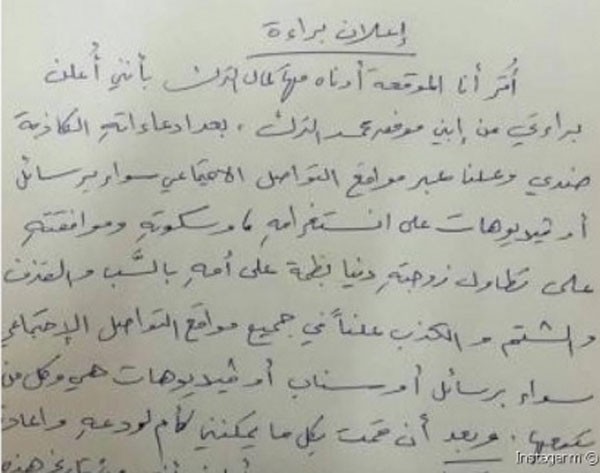 إعلان براءة
أُقر أنا الموقعة أدناه مها كمال الترك بأنني أُعلن
براءتي من إبني موفق محمد الترك ، بعد ادعاءاتهِ الكاذبة
ضدي وعلناً عبر مواقع التواصل الاجتماعي سواء برسائل
أو ڤيديوهات على انستغرامهِ وسكوتهِ وموافقتهِ
على تطاول زوجتهِ دنيا بطمة على أمهِ بالسَّب والقذف
والشتم والكذب علناً في جميع مواقع التواصل الإجتماعي
سواء برسائل أو سناب أو ڤيديوهات هي وكل من
يتبعها . وبعد أن قمت بكل ما يمكنني كأم لردعهِ واعادة
Instagarm ©